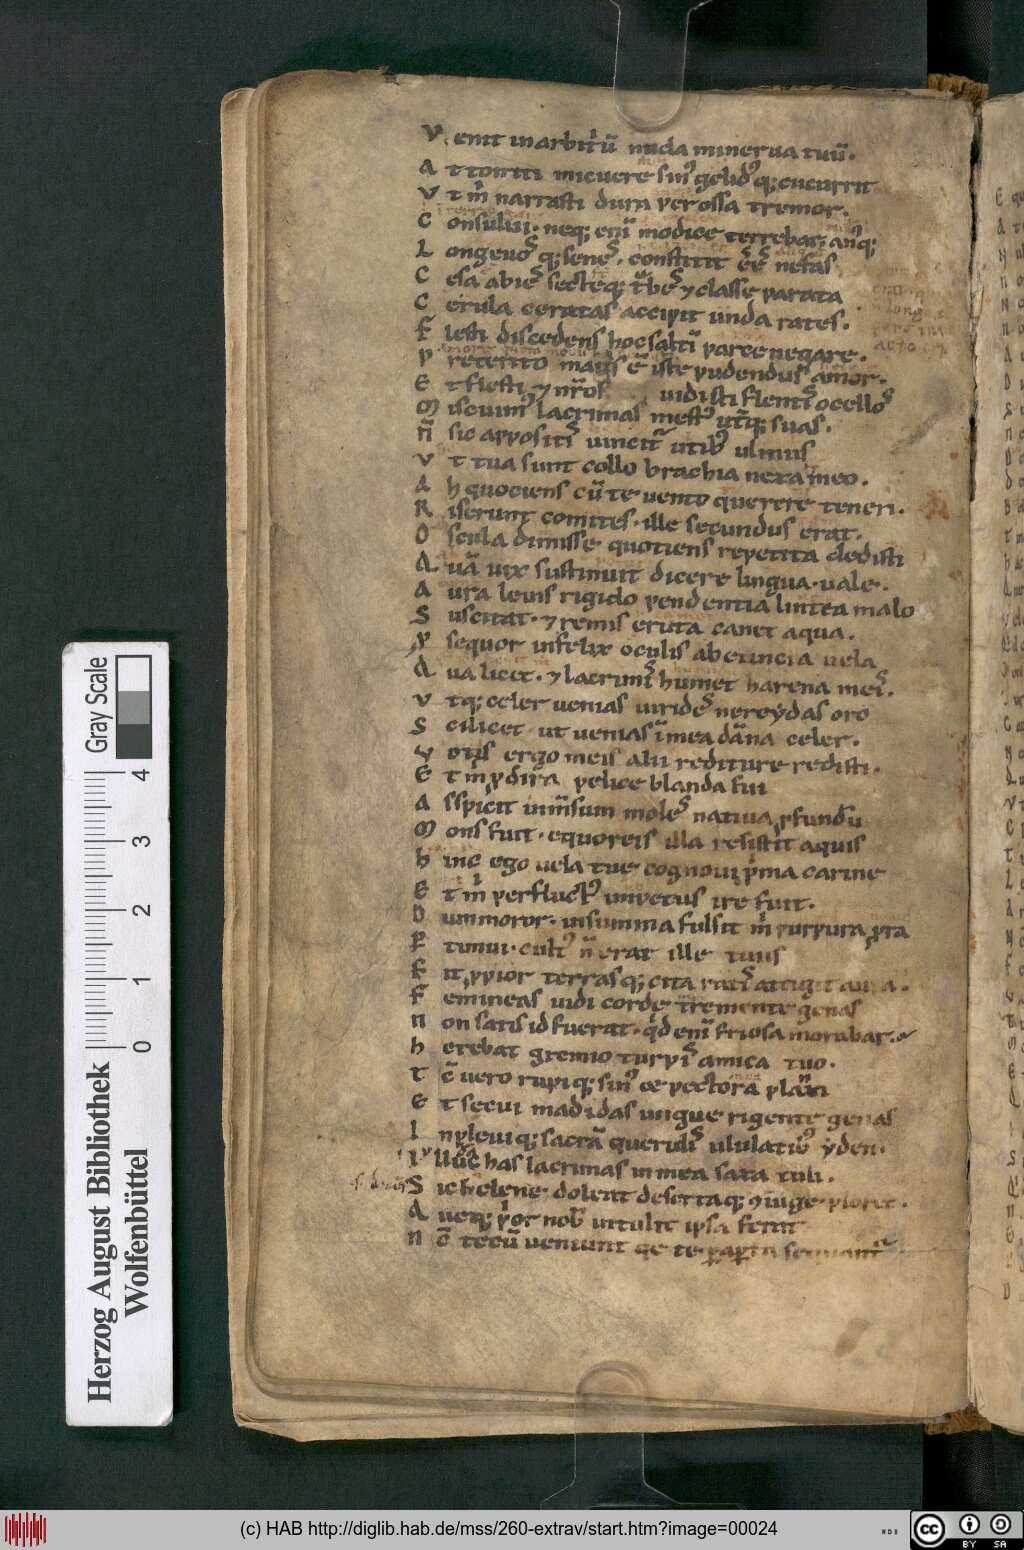 V enit in arbitriũ nuda minerua tuũ.
A ttoniti micuere sin⁹ gelid⁹q; cucurrit
V t m̉ narrasti dura per ossa tremor.
C onsului. neq; eni᷉ modice terrebar. an⁹q;
L ongeuo᷒q; sene᷒. constitit e᷉e᷉ nefas
C esa abie᷒ secteq; t̉be᷒ ⁊ classe parata
C erula ceratas accipit unda rates.
F lesti discedens hoc salti᷉ parce negare.
P reterito magis e᷉ iste pudendus amor.
E t flesti ⁊ nr̃os uidisti flenti᷒ ocello᷒
M iscuim⁹ lacrimas mest⁹ ut̃q; suas.
N̄ sic appositi᷒ uincit̃ uitib⁹ ulmus
V t tua sunt collo brachia nexa meo.
A h quociens cũ te uento querere teneri.
R iserunt comites. ille secundus erat.
O scula dimisse quotiens repetita dedisti
Q uã uix sustinuit dicere lingua. uale.
A ura leuis rigido pendentia lintea malo
S uscitat. ⁊ remis eruta canet aqua.
P sequor infelix oculis abeuncia uela
Q ua licet. ⁊ lacrimi᷒ humet harena mei᷒.
V tq; celer uenias uiride᷒ nereydas oro
S cilicet ut uenias i᷉ mea dãna celer.
V otis ergo meis alii rediture redisti.
E t m̉ ꝓ dira pelice blanda fui
A sspicit inm̃sum mole᷒ natiua ꝓfund̃u
M ons fuit. equoreis illa resistit aquis
H inc ego uela tue cognoui p̉ma carine
E t m̉ per fluct⁹ impetus ire fuit.
D um moror. in summa fulsit m̉ purpura ꝓra
P̱ timui. cult⁹ ñ erat ille tuus
F it ꝓpior terrasq; cita rati᷒ attigit aura.
F emineas uidi corde tremente genas
N on satis id fuerat. q̉d eni᷉ friosa morabar.
H erebat gremio turpi᷒ amica tuo.
T c̃ uero rupiq; sin⁹ &
E t secui madidas ungue rigente genas
I npleuiq; sacrã queruli᷒ ululatib⁹ yden.
has lacrimas in mea saxa tuli.
S ic helene doleat desertaq; ↄiuge ploret.
Q ueq; p̉or nob̃ intulit ipsa ferat
N c̃ tecũ ueniunt qe te
(c) HAB http://diglib.hab.de/mss/260-extrav/start.htm?image=00024
Herzog August Bibliothek
Wolfenbüttel
Gray Scale
0 1 2 3 4
WDB
CC BY SA